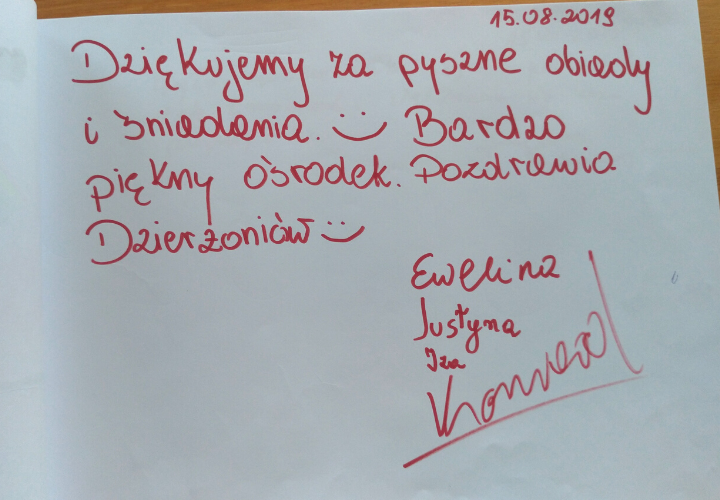 15.08.2019
Dziękujemy za pyszne obiady
i śniadania. :) Bardzo
piękny ośrodek. Pozdrawia
Dzierżoniów :)
Ewelina
Justyna
Iza
Konrad